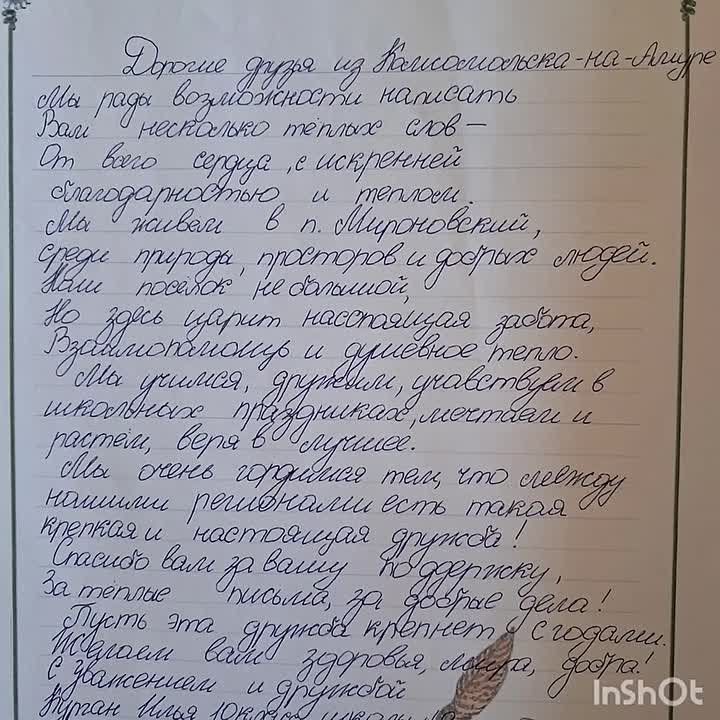 Дорогие друзья из Комсомольска-на-Амуре
Мы рады возможности написать
Вам несколько тёплых слов —
От всего сердца, с искренней
благодарностью и теплом.
Мы живём в п. Мироновский,
среди природы, просторов и добрых людей.
Наш посёлок не большой,
Но здесь царит насстоящая забота,
Взаимопомощь и душевное тепло.
Мы учимся, дружим, учавствуем в
школьных праздниках, мечтаем и
растём, веря в лучшее.
Мы очень гордимся тем, что между
нашими регионами есть такая
крепкая и настоящая дружба!
Спасибо вам за вашу поддержку,
За тёплые письма, за добрые дела!
Пусть эта дружба крепнет с годами.
Желаем вам здоровья, мира, добра!
С уважением и дружбой
Курган Илья
InShOt